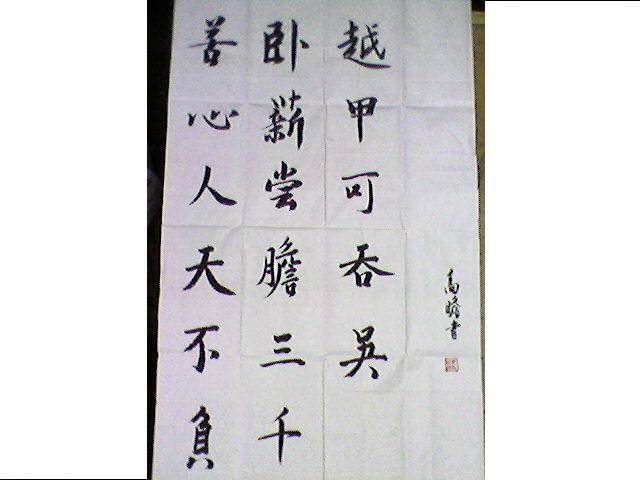 苦心人天不負
卧薪尝膽三千
越甲可吞吴
高 書